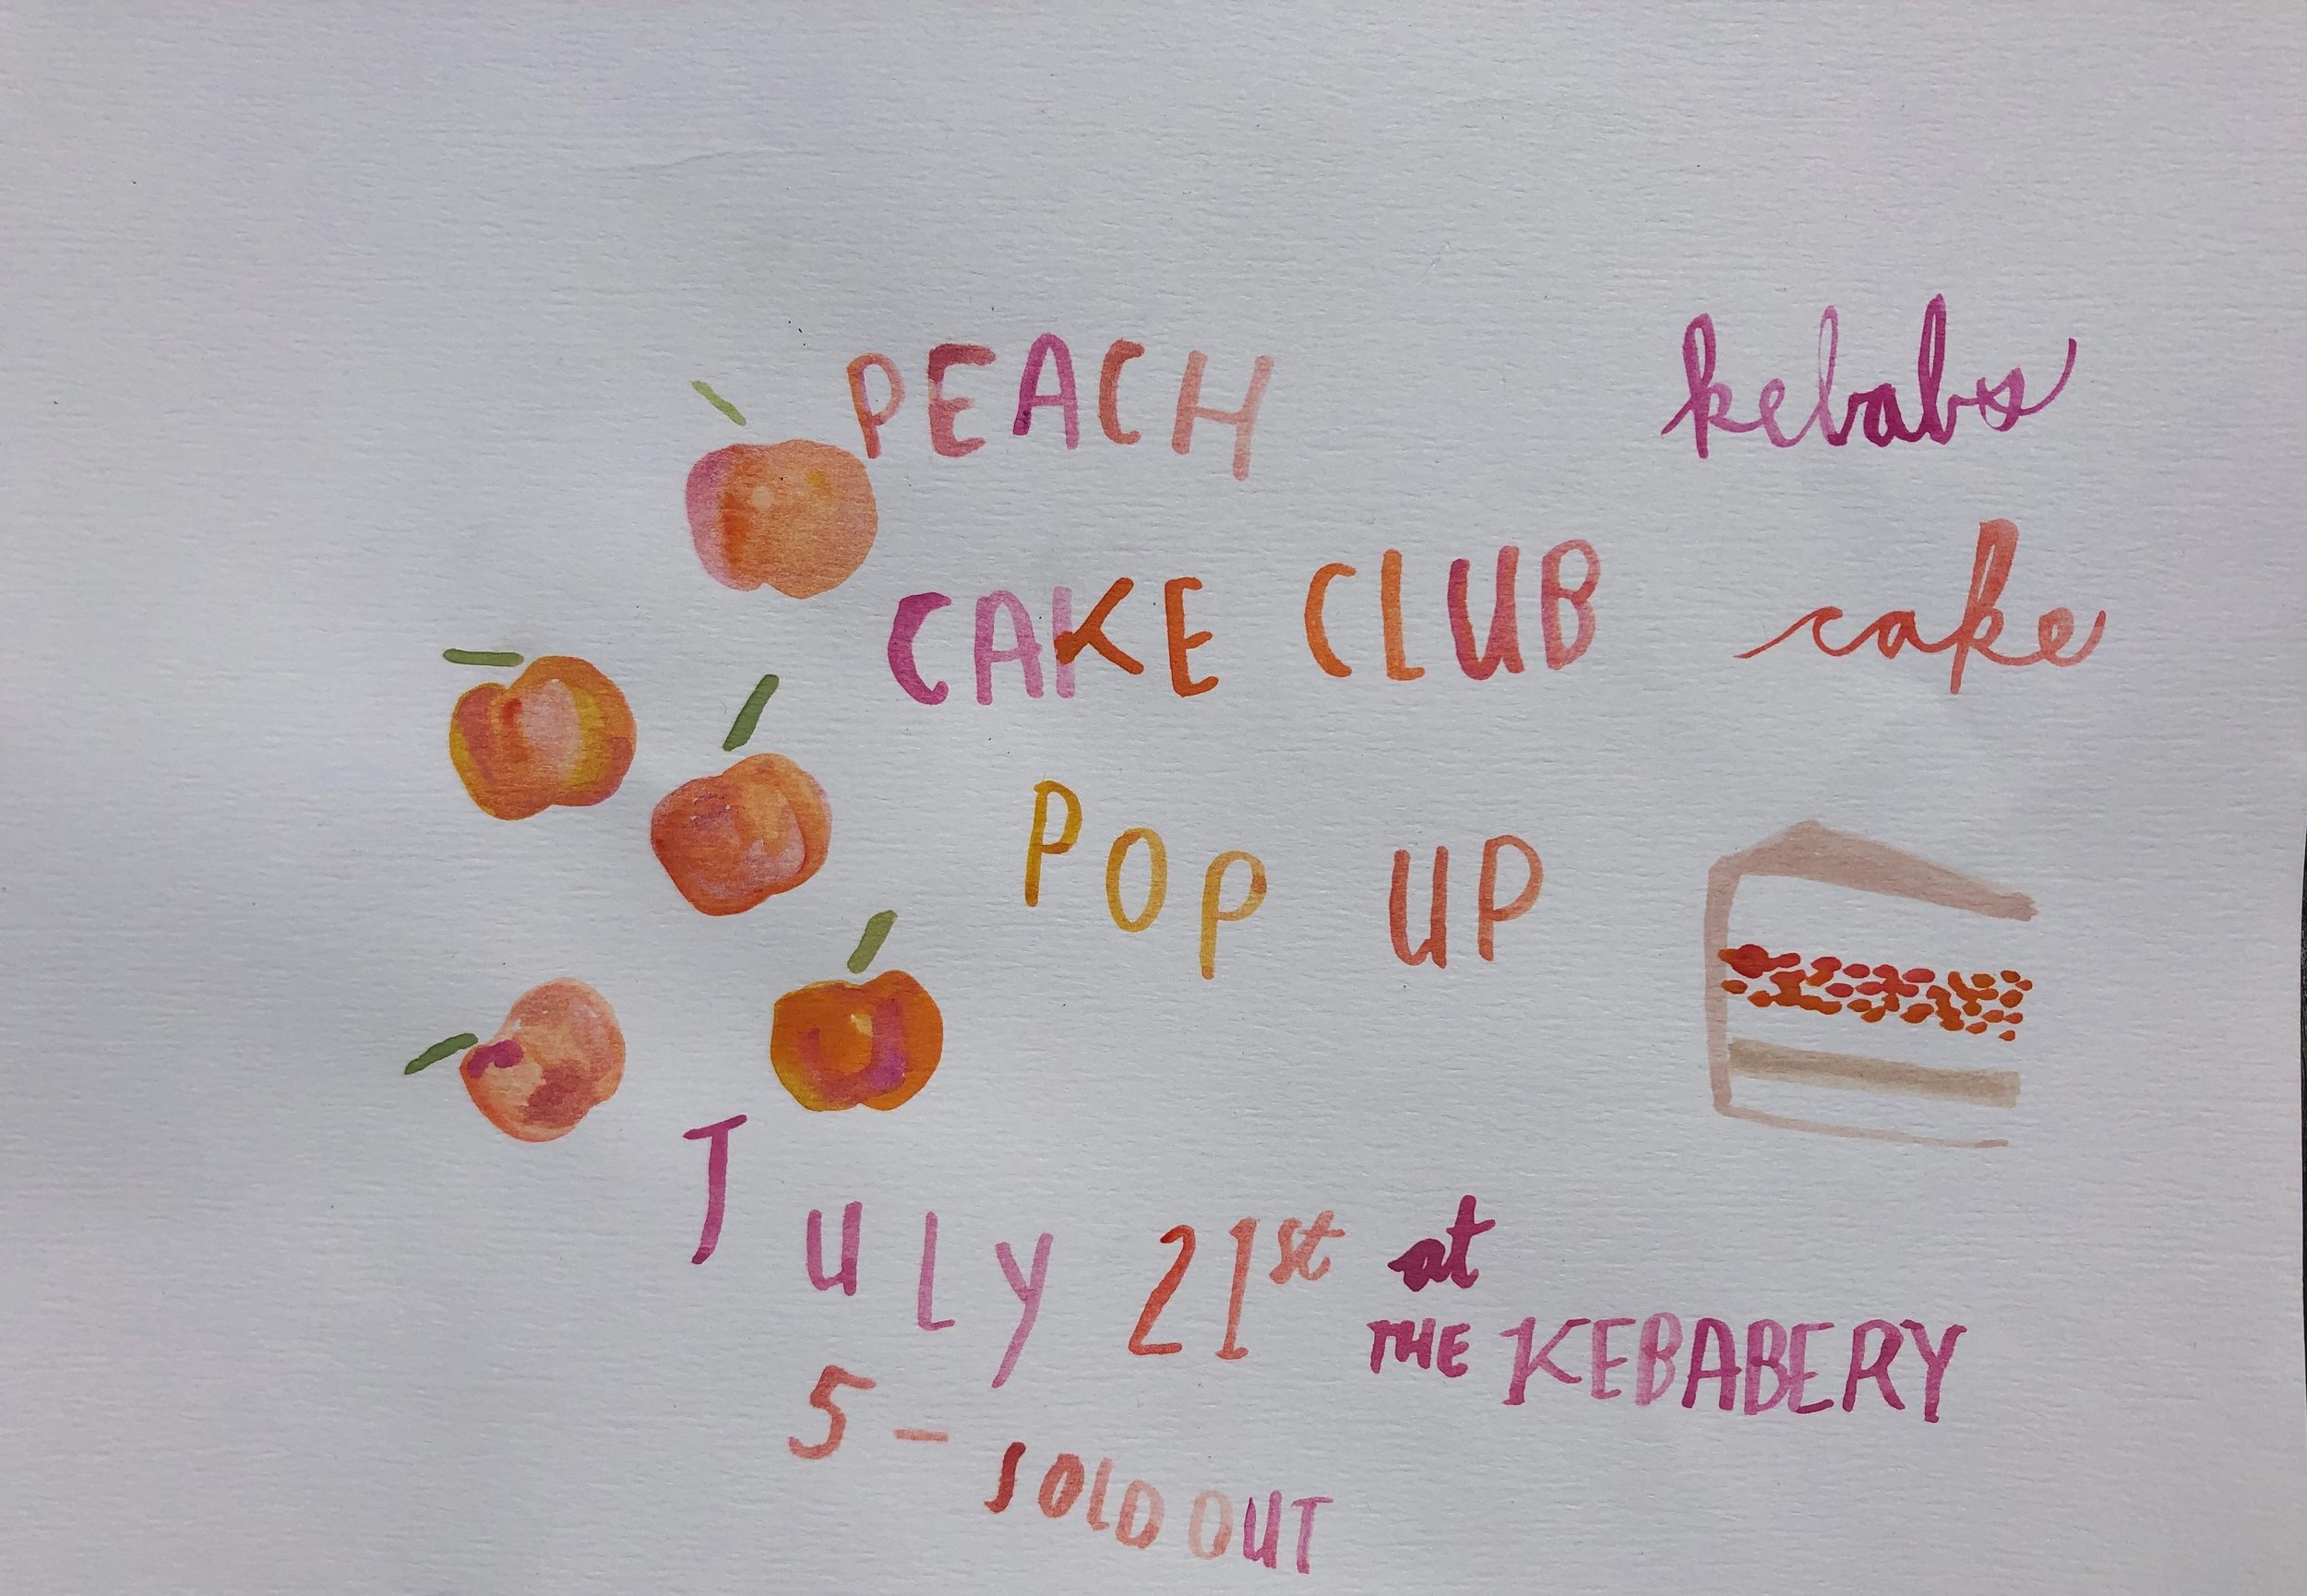 PEACH
CAKE CLUB
POP UP
kebabs
cake
JULY 21st at
THE KEBABERY
5 - SOLD OUT